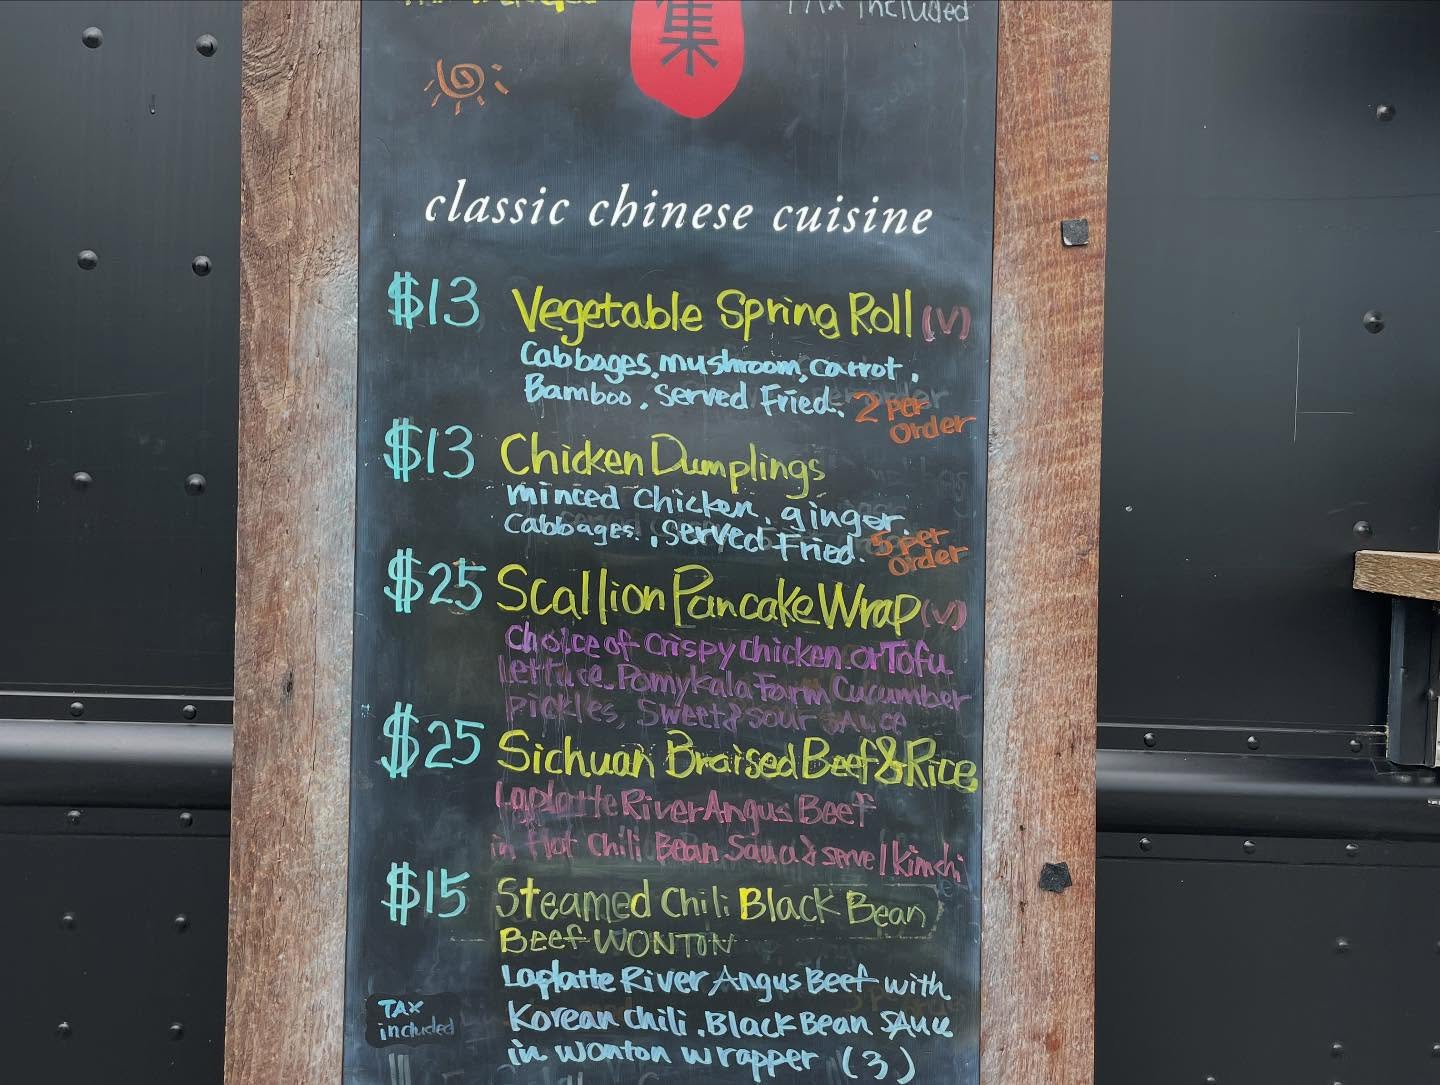 TAX included
集
classic chinese cuisine
$13 Vegetable Spring Roll (V)
Cabbages, mushroom, carrot,
Bamboo, Served Fried. 2 per
Order
$13 Chicken Dumplings
minced Chicken, ginger,
Cabbages., Served Fried. 5 per
Order
$25 Scallion Pancake Wrap (V)
Choice of Crispy Chicken or Tofu
lettuce, Pomykala Farm Cucumber
Pickles, Sweet & sour sauce
$25 Sichuan Braised Beef & Rice
Laplatte River Angus Beef
in Hot Chili Bean Sauce & serve / Kimchi
$15 Steamed Chili Black Bean
Beef WONTON
Laplatte River Angus Beef with
TAX
included
Korean chili, Black Bean SAuce
in wonton wrapper (3)